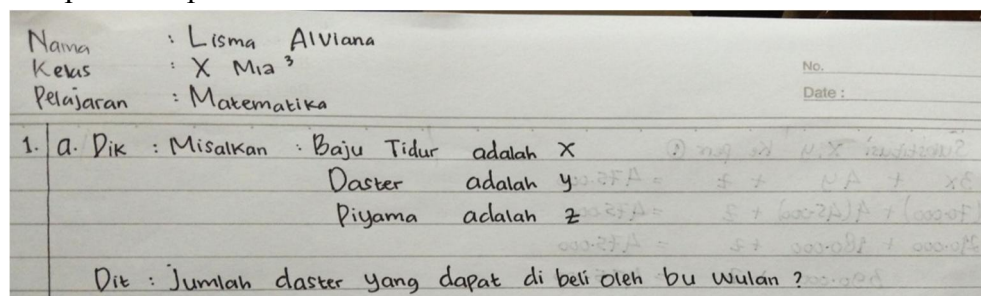 Nama : Lisma Alviana
Kelas : X Mia 3
Pelajaran : Matematika
No.
Date :
1. a. Dik : Misalkan : Baju Tidur adalah x
Daster adalah y
Piyama adalah z
Dit : Jumlah daster yang dapat di beli oleh bu wulan ?